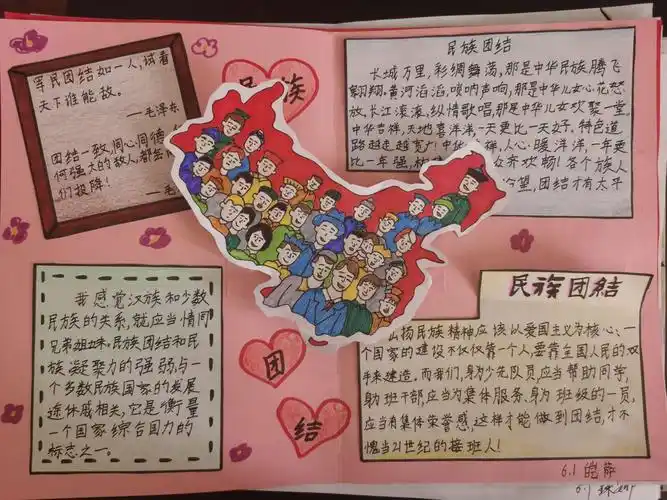 军民团结如一人，试看
天下谁能敌。
—毛泽东
团结一致，同心同德
何强大的敌人，都会
们投降！
—毛
民族
民族团结
长城万里，彩绸舞荡，那是中华民族腾飞
翱翔。黄河滔滔，唢呐声响，那是中华儿女心花怒
放。长江滚滚，纵情歌唱，那是中华儿女欢聚一堂
中华吉祥，天地喜洋洋，一天更比一天好。特色道
路越走越宽广！中华 祥，人心暖洋洋，一年更
比一年强， 众齐欢畅！各个族人
望，团结才有太平
我感觉汉族和少数
民族的关系，就应当情同
兄弟姐妹。民族团结和民
族凝聚力的强弱，与一
个多数民族国家的发展
途休戚相关，它是衡量
一个国家综合国力的
标志之一。
团
结
民族团结
扬民族精神应该以爱国主义为核心：一
个国家的建设不仅仅靠一个人，要靠全国人民的双
手来建造。而我们，身为少先队员应当帮助同学，
身为班干部，应当为集体服务，身为班级的一员，
应当有集体荣誉感，这样才能做到团结，才不
愧当21世纪的接班人！
6.1
6.1